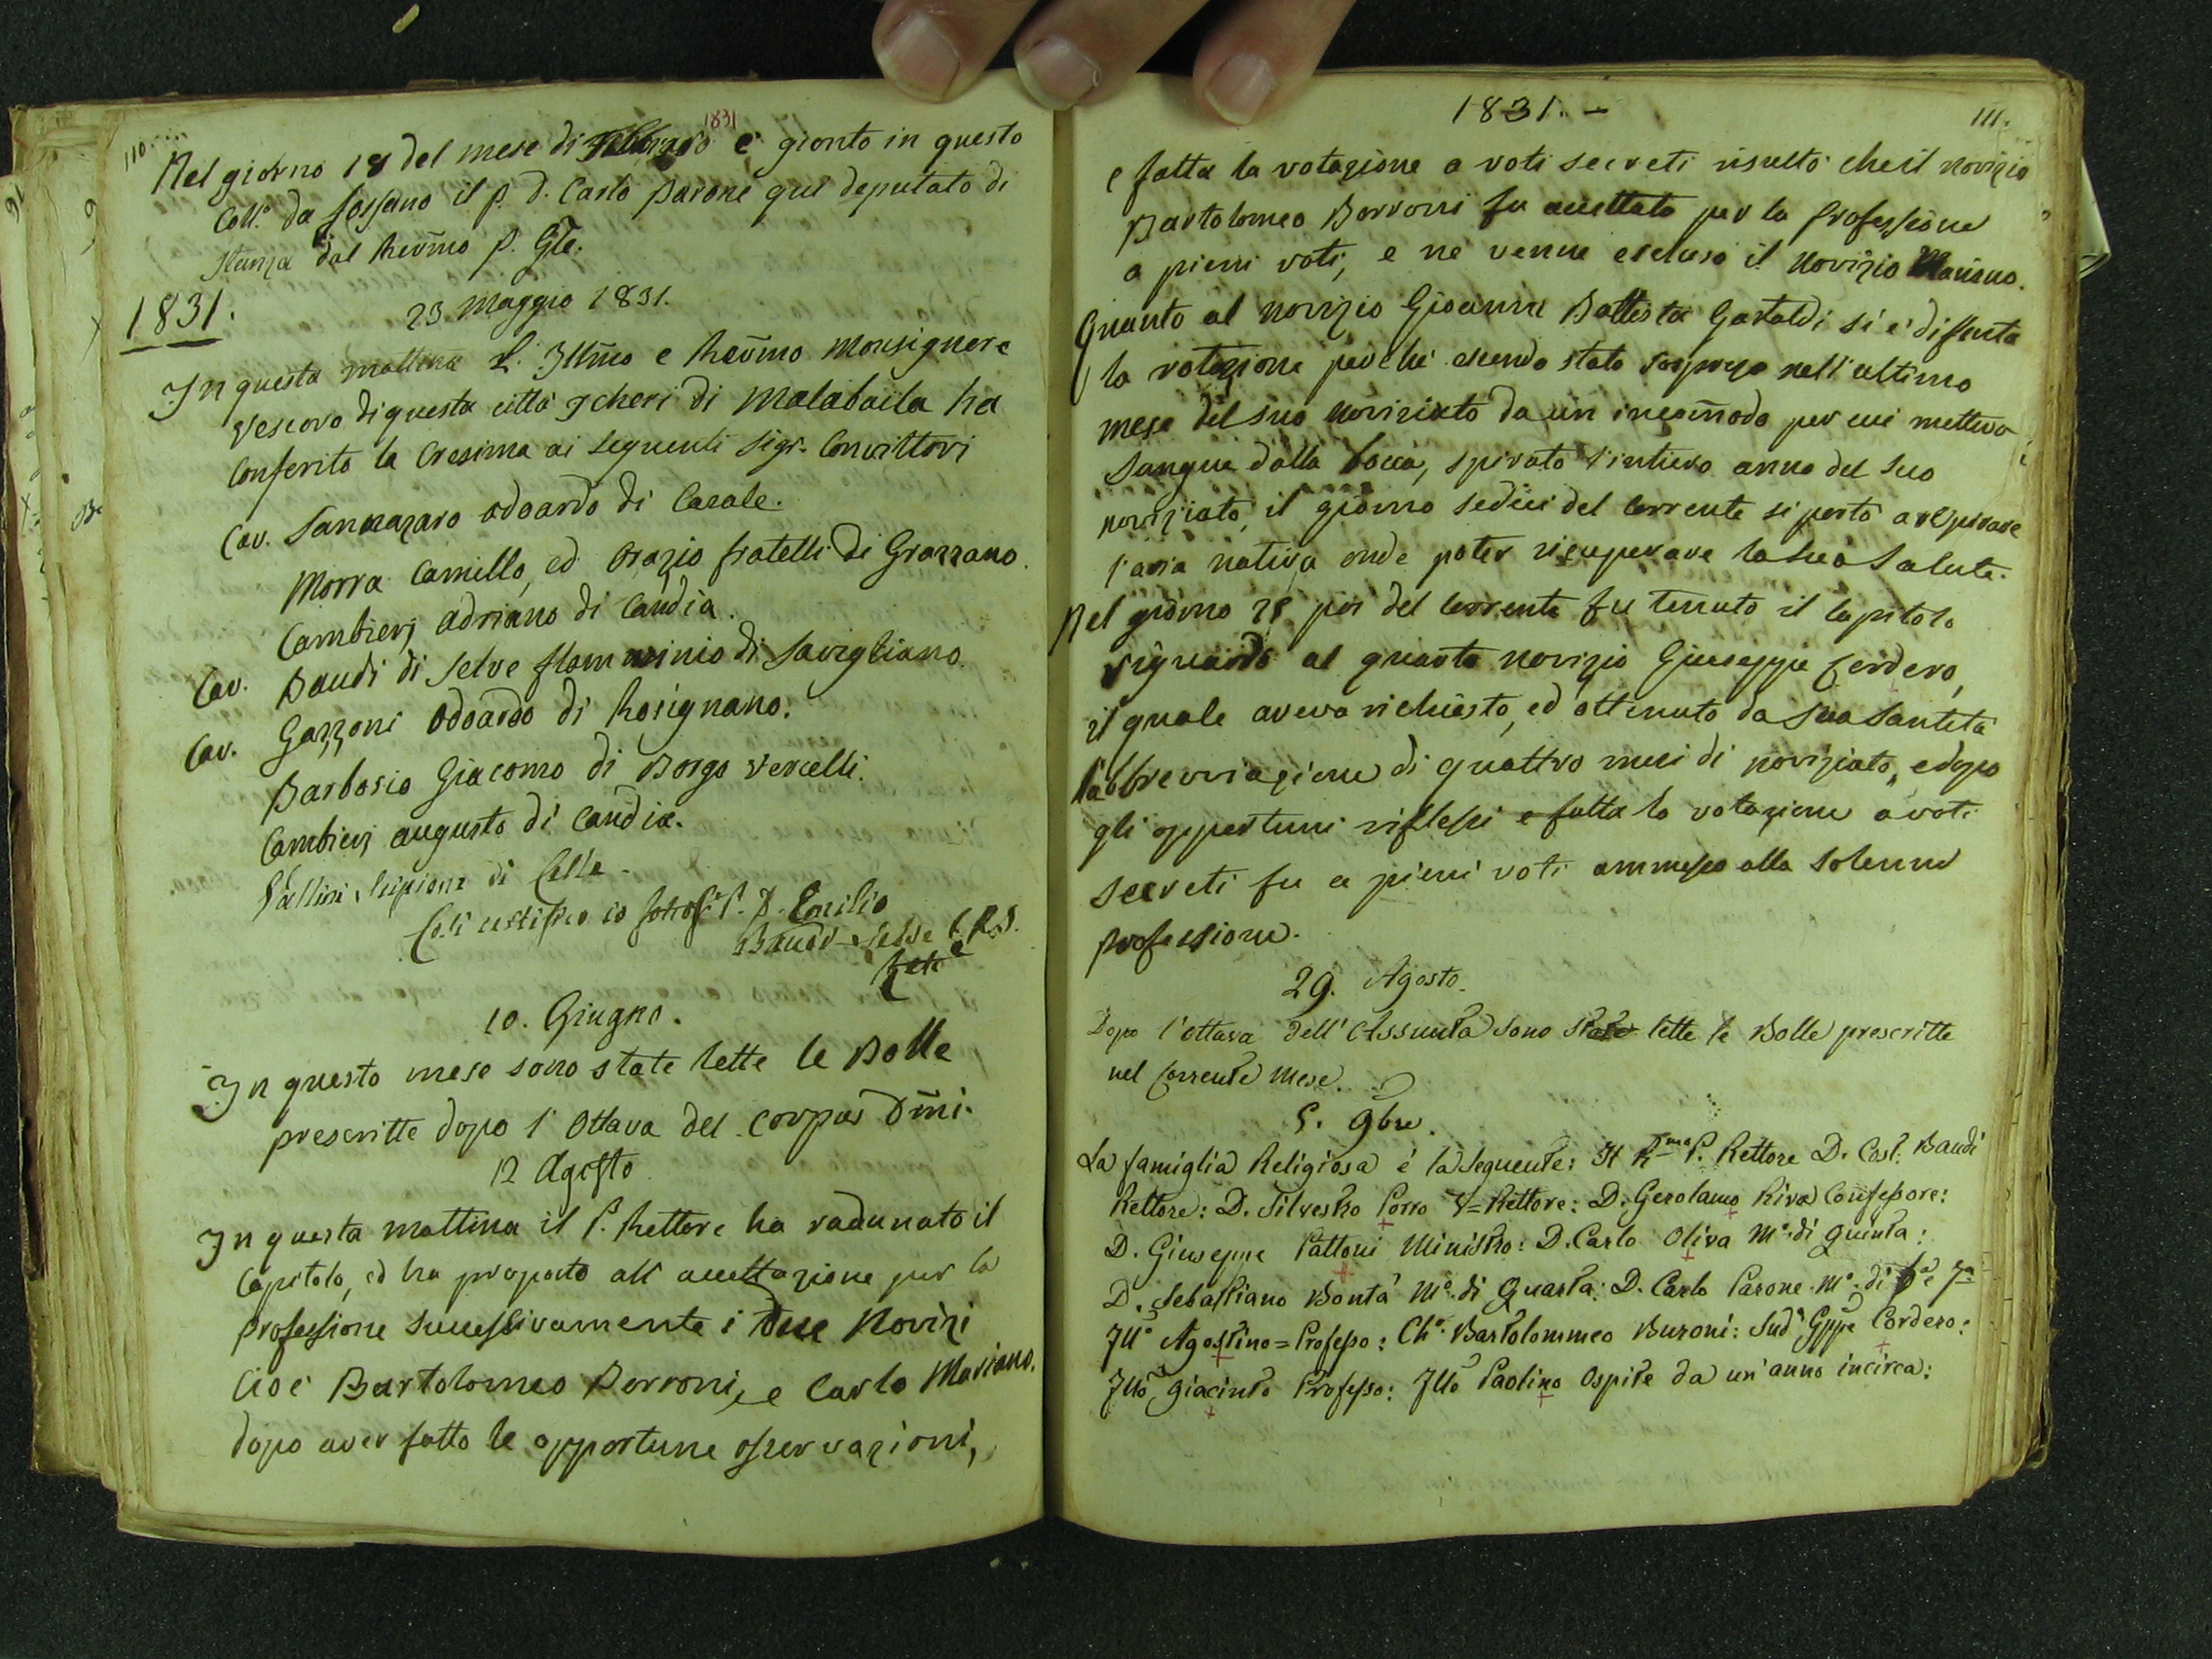 110.
1831
Nel giorno 18 del mese di Febbrajo è gionto in questo
Coll.º da Fossano il P. D. Carlo Parone qui deputato di
stanza dal Rev̄mo P. Gle.
1831.
23 Maggio 1831.
In questa mattina L'Illm̄o e Rev̄mo Monsignore
Vescovo di questa città Scheri di Malabaila ha
Conferito la Cresima ai Seguenti Sigr. Convittori
Cav. Sannazaro Odoardo di Casale.
Morra Camillo, ed Orazio fratelli di Grazzano.
Cambierj Adriano di Candia.
Cav. Baudi di Selve Flamminio di Savigliano.
Cav. Gozzoni Odoardo di Rosignano.
Barbosio Giacomo di Borgo Vercelli.
Cambierj augusto di Candia.
Vallini Scipione di Celle.
Così certifico io sottos.º P. D. Emilio
Baudi Selve C.R.S.
Rett.e
10. Giugno.
In questo mese sono state lette le Bolle
prescritte dopo l'Ottava del Corpus Dm̄i.
12 Agosto
In questa mattina il P. Rettore ha radunato il
Capitolo, ed ha proposto all'accettazione per la
professione Successivamente i due Novizi
Cioè Bartolomeo Borroni, e Carlo Mariano.
dopo aver fatto le opportune osservazioni,
1831. -
111.
e fatta la votazione a voti secreti risultò che il novizio
Bartolomeo Borroni fu accettato per la Professione
a pieni voti, e ne venne escluso il Novizio Mariano.
Quanto al Novizio Gioanni Battista Gastaldi si è differita
la votazione perchè essendo stato sorpreso nell'ultimo
mese del suo noviziato da un incom̄odo per cui metteva
Sangue dalla bocca, spirato l'intiero anno del suo
noviziato, il giorno sedici del corrente si portò a respirare
l'aria nativa onde poter ricuperare la sua Salute.
Nel giorno 28 poi del corrente fu tenuto il Capitolo
riguardo al quarto novizio Giuseppe Cordero,
il quale aveva richiesto, ed ottenuto da Sua Santità
l'abbreviazione di quattro mesi di noviziato, e dopo
gli opportuni riflessi e fatta la votazione a voti
secreti fu a pieni voti ammesso alla Solenne
professione.
29. Agosto.
Dopo l'ottava dell'Assunta sono state lette le Bolle prescritte
nel Corrente Mese.
5. 9bre.
La famiglia Religiosa è la Seguente: Il R.mo P. Rettore D. Cost. Baudi
Rettore: D. Silvestro Porro V=Rettore: D. Gerolamo Riva Confessore:
D. Giuseppe Pattoni Ministro: D. Carlo Oliva M.º di Quinta:
D. Sebastiano Bontà M.º di Quarta: D. Carlo Parone M.º di 6.a e 7.a
Fllo Agostino=Professo: Ch.º Bartolommeo Buroni: Sud.º Gppe Cordero:
Fllo Giacinto Professo: Fllo Paolino Ospite da un'anno incirca: